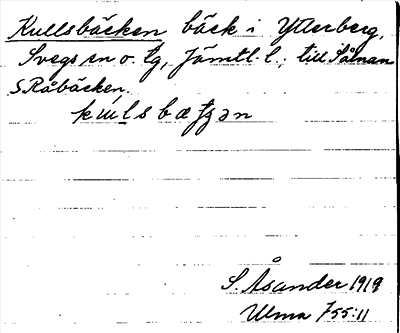 Kullsbäcken bäck i Ytterberg,
Svegs sn o. tg, Jämtl. l.; till
S Råbäcken.
S. Åsander 1919
Ulma 755:11